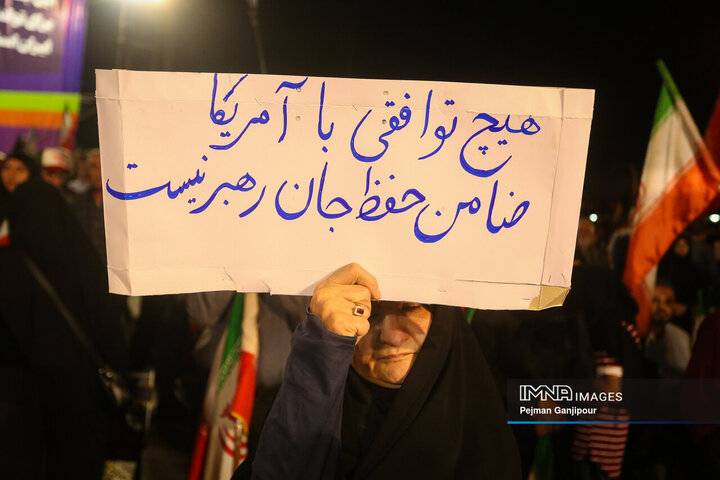 هیچ توافقی با آمریکا
ضامن حفظ جان رهبر نیست
IMNA IMAGES
Pejman Ganjipour